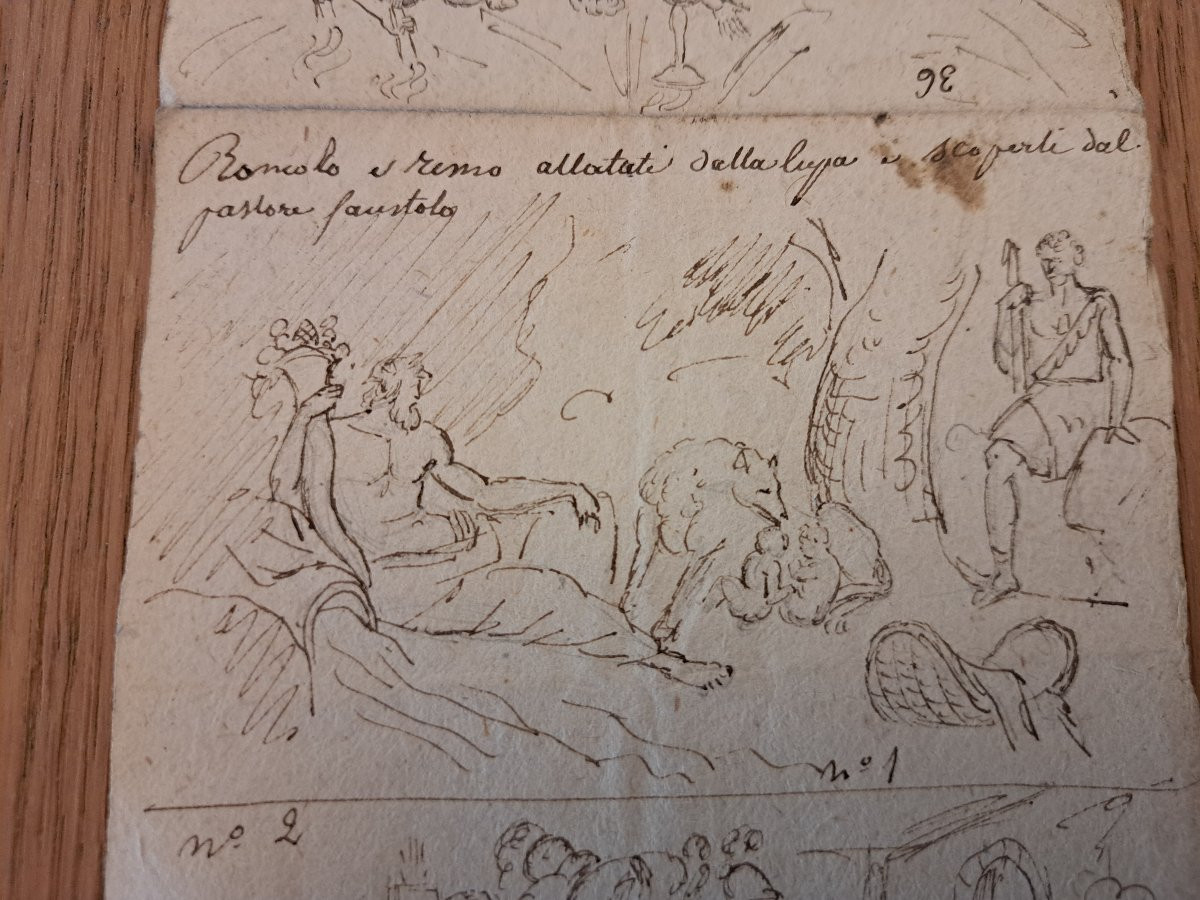 36
Romolo e remo allatati dalla lupa e scoperti dal
pastore faustolo
nº 1
nº 2